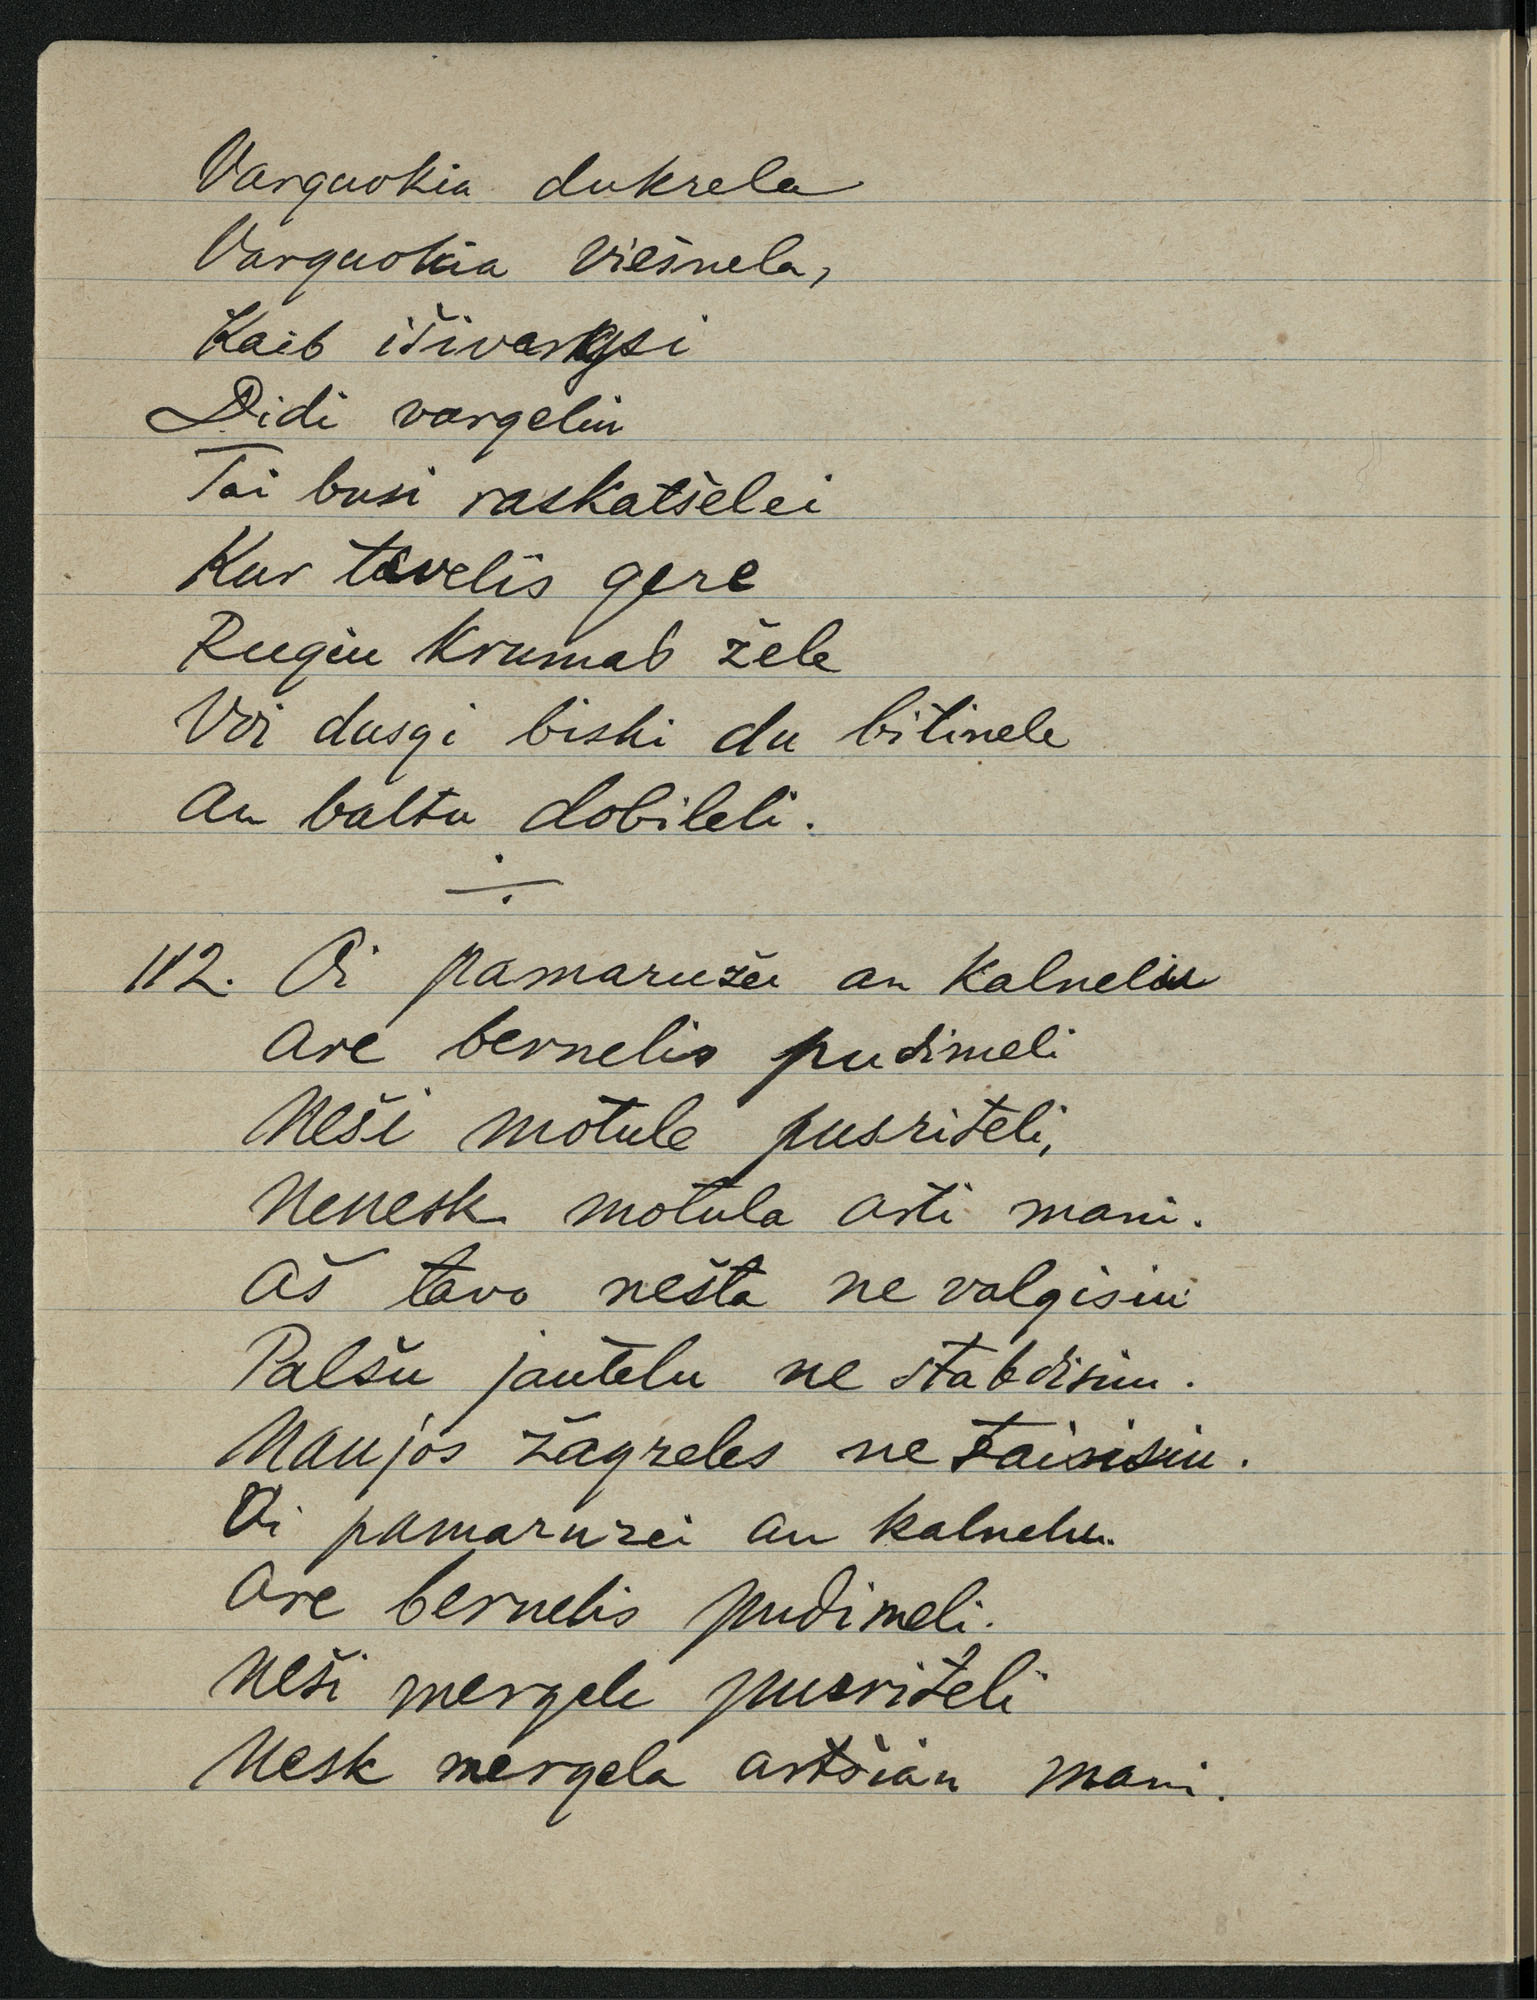 Varguokia dukrela
Varguokia viešnela,
Kaib išivargsi
Didi vargeliu
Tai busi raskatšelei
Kur tevelis gere
Rugiu krumab žele
Voi dusgi biski du bitinele
An baltu dobileli.
112. Oi pamaružei an kalneliu
Are bernelis pudimeli
Neši motule pusriteli,
Nenesk motula arti mani.
Aš tavo nešta ne valgisiu
Palšu jautelu ne stabdisiu.
Naujos žagreles ne taisisiu.
Oi pamaruzei an kalneliu.
Are bernelis pudimeli.
Neši mergele pusriteli
Nesk mergela artšian mani.